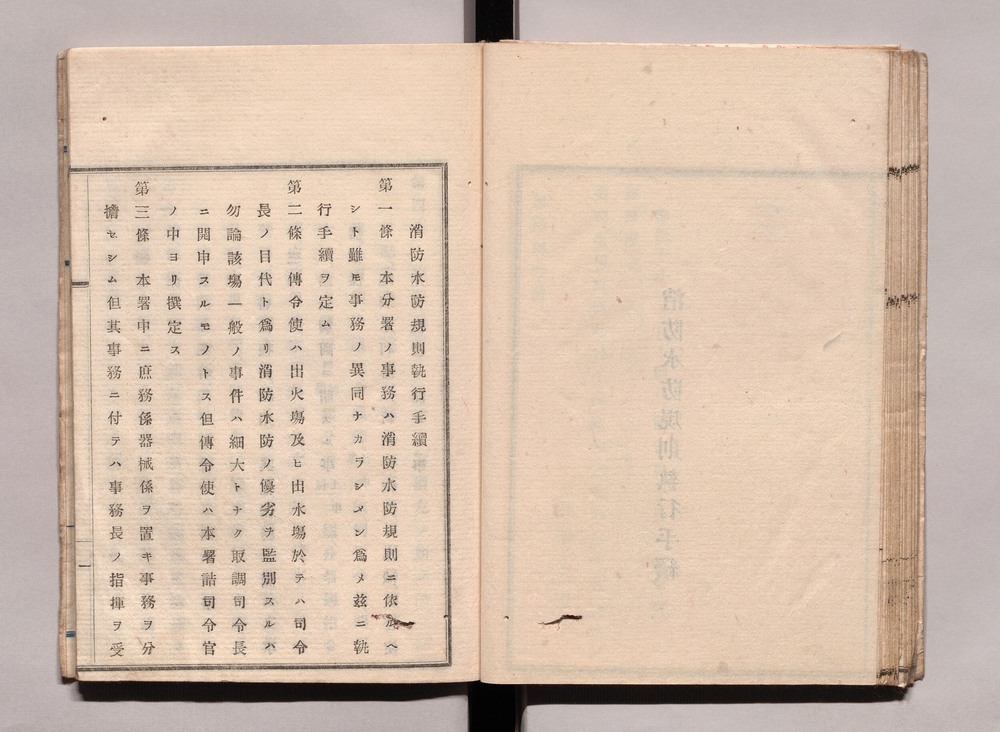 消防水防規則執行手續
第一條 本分署ノ事務ハ消防水防規則ニ依ルヘ
シト雖モ事務ノ異同ナカラシメン爲メ玆ニ執
行手續ヲ定ム
第二條 傳令使ハ出火塲及ヒ出水塲於テハ司令
長ノ目代ト爲リ消防水防ノ優劣ヲ監別スルハ
勿論該塲一般ノ事件ハ細大トナク取調司令長
ニ開申スルモノトス但傳令使ハ本署詰司令官
ノ中ヨリ撰定ス
第三條 本署中ニ庶務係器械係ヲ置キ事務ヲ分
擔セシム但其事務ニ付テハ事務長ノ指揮ヲ受
一